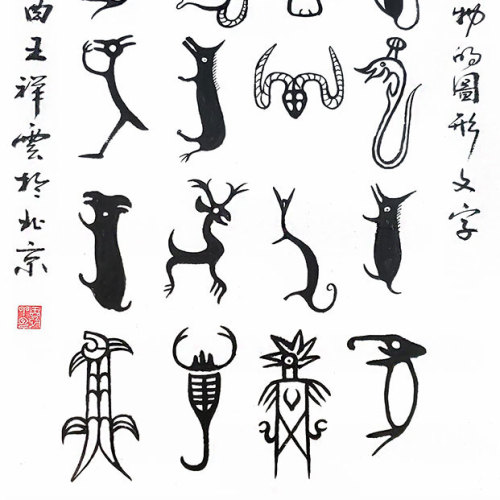 物的圖形文字
王祥雲於北京